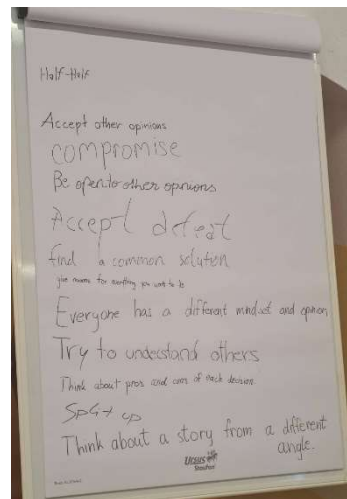 Half-Half
Accept other opinions
compromise
Be open to other opinions
Accept defeat
find a common solution
give reasons for everything you want to do
Everyone has a different mindset and opinion
Try to understand others
Think about pros and cons of each decision
Split up
Think about a story from a different
angle.
URSUS